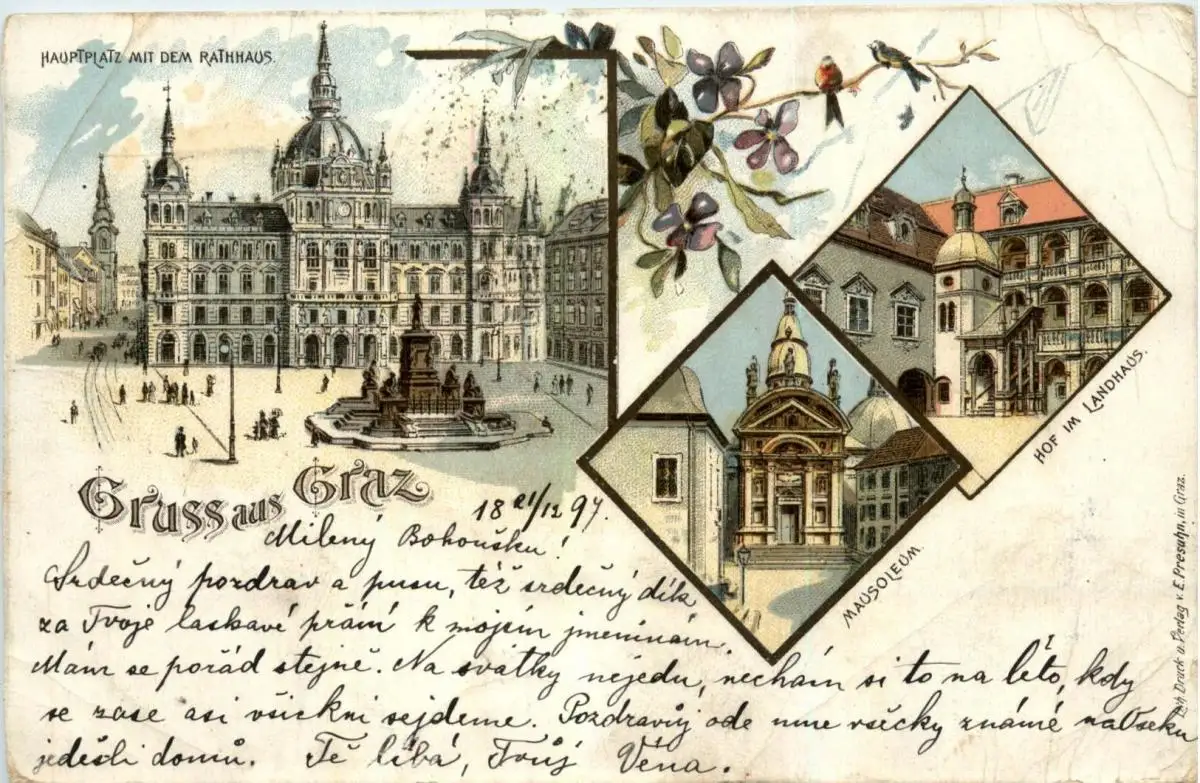 HAUPTPLATZ MIT DEM RATHHAUS.
HOF IM LANDHAUS.
MAUSOLEUM.
Gruss aus Graz
18 21/12 97.
Milený Bohoušku!
Srdečný pozdrav a pusu, též srdečný dík
za Tvoje laskavé přání k mojím jmeninám.
Mám se pořád stejně. Na svátky nejedu, nechám si to na léto, kdy
se zase asi všickni sejdeme. Pozdravuj ode mne všecky známé na
jedeš-li domů. Tě líbá, Tvůj Véna.
Lith. Druck u. Verlag v. E. Presuhn, in Graz.